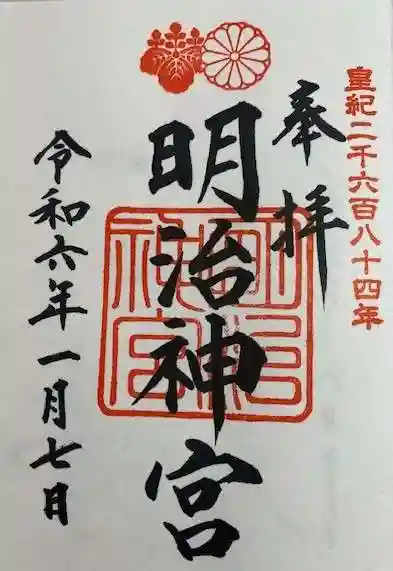 皇紀二千六百八十四年
奉拝
明治神宮
明治神宮
令和六年一月七日